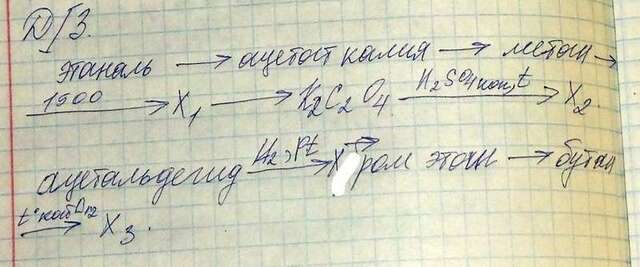 Д/З.
этаналь → ацетат калия → метан →
1500 → X1 → K2C2O4 H2SO4 конц, t → X2
ацетальдегид H2, Pt → X ром этан → бутан
t° кат → X3.